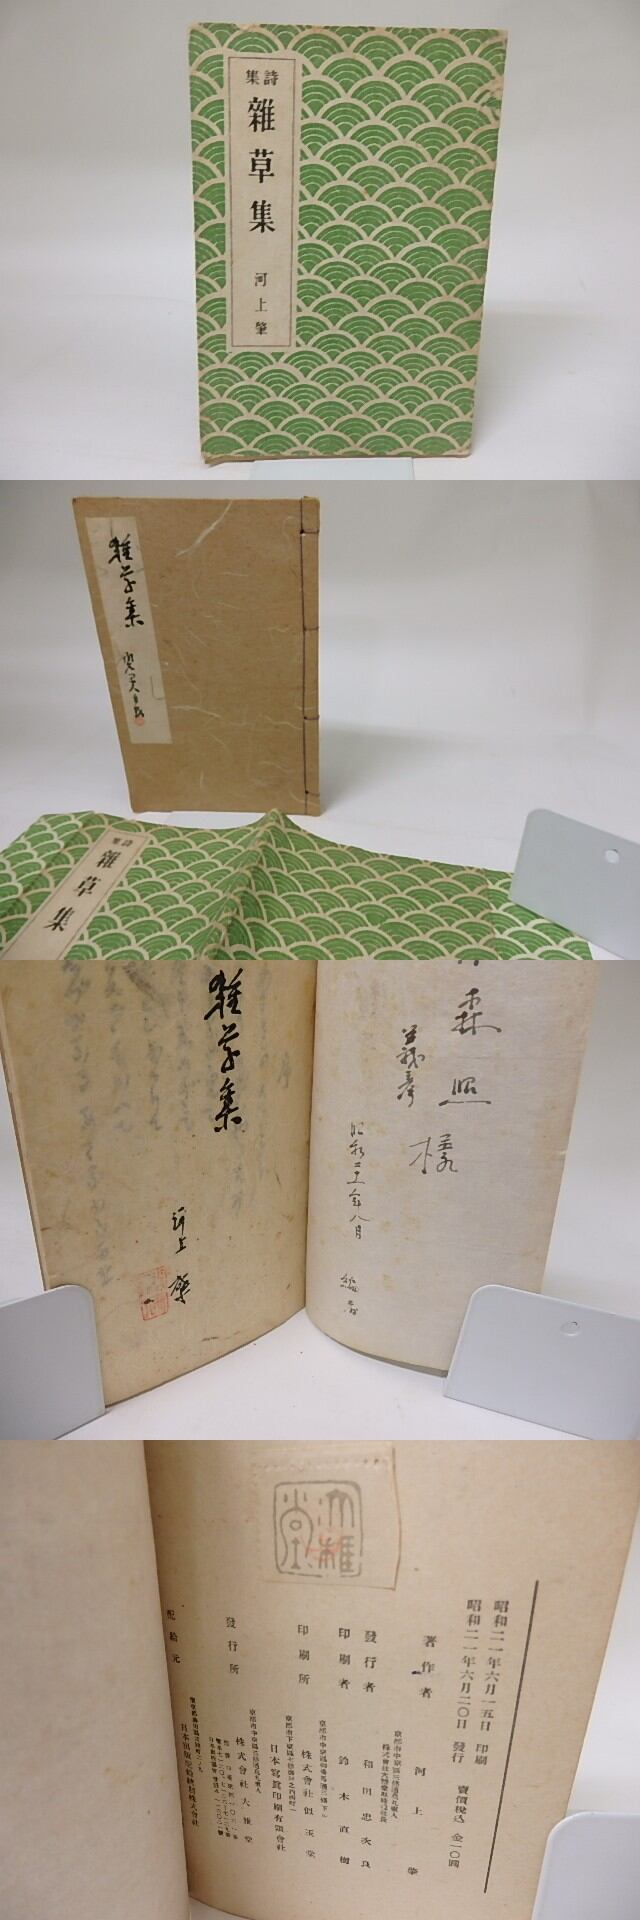 詩集
雜草集
河上肇
雜草集
詩集
雜草集
雜草集
河上肇
森照様
昭和二十一年八月
編者
大雅堂
昭和二一年六月一五日 印刷
昭和二一年六月二〇日 發行
賣價税込 金一〇圓
著作者 河上肇
發行者 和田忠次良
印刷者 鈴木直樹
株式會社似玉堂
印刷所
日本寫眞印刷有限會社
發行所
株式會社大雅堂
配給元
日本出版配給株式會社